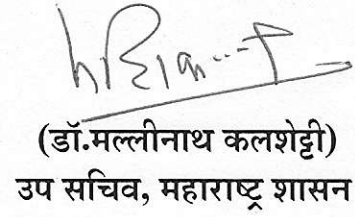 (डॉ.मल्लीनाथ कलशेट्टी)
उप सचिव, महाराष्ट्र शासन